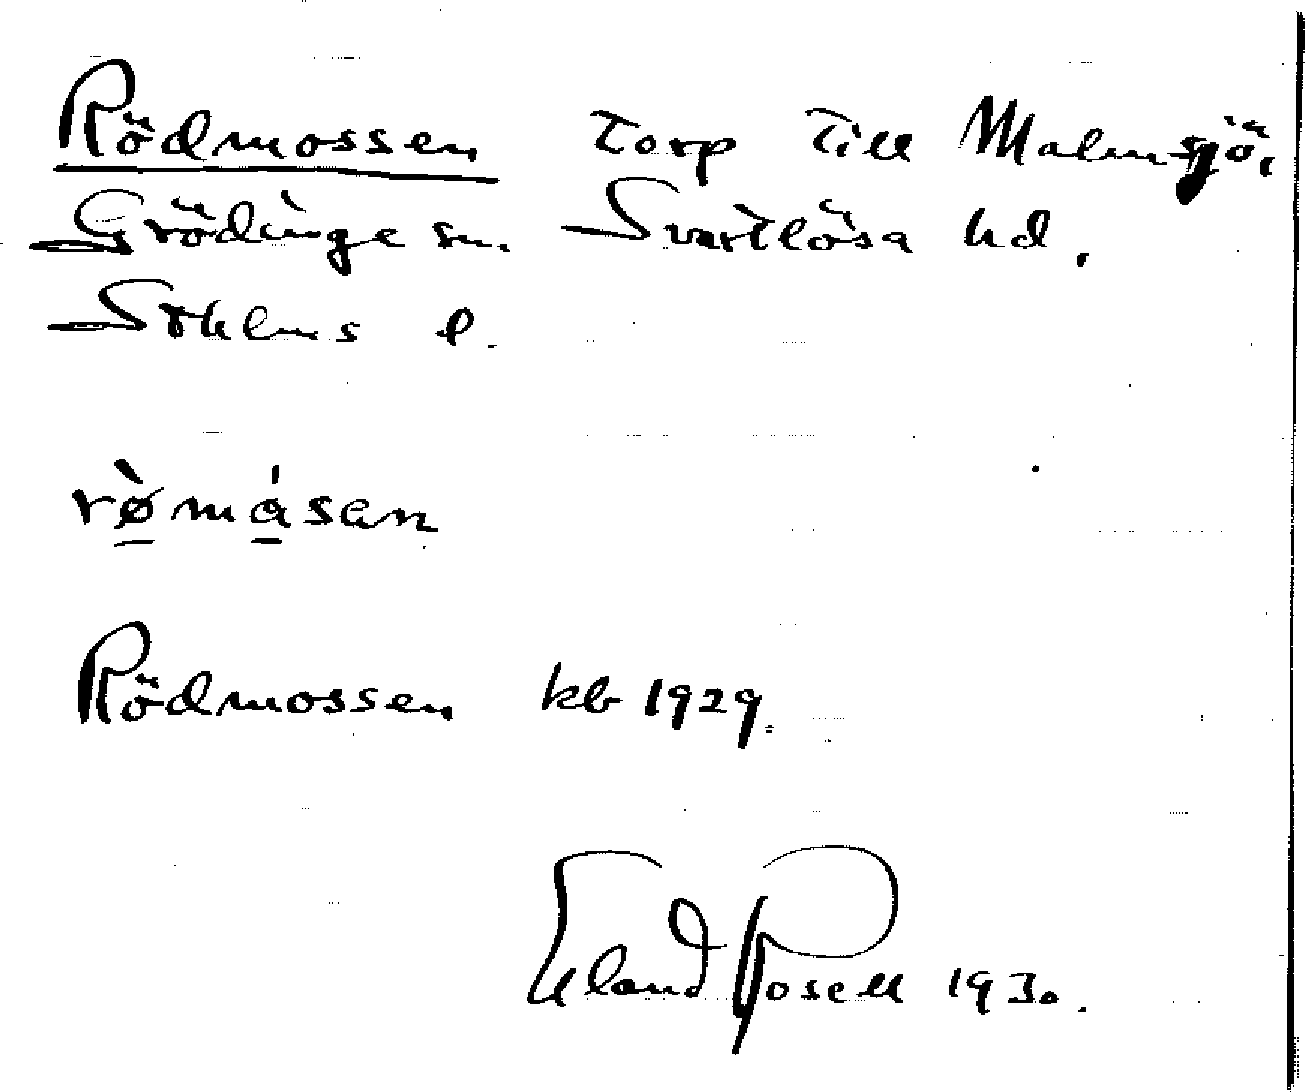 Rödmossen torp till Malmsjö,
Grödinge sn. Svartlösa hd.
Sthlms l.
rø̀másan
Rödmossen kb 1929.
Erland Rosell 1930.